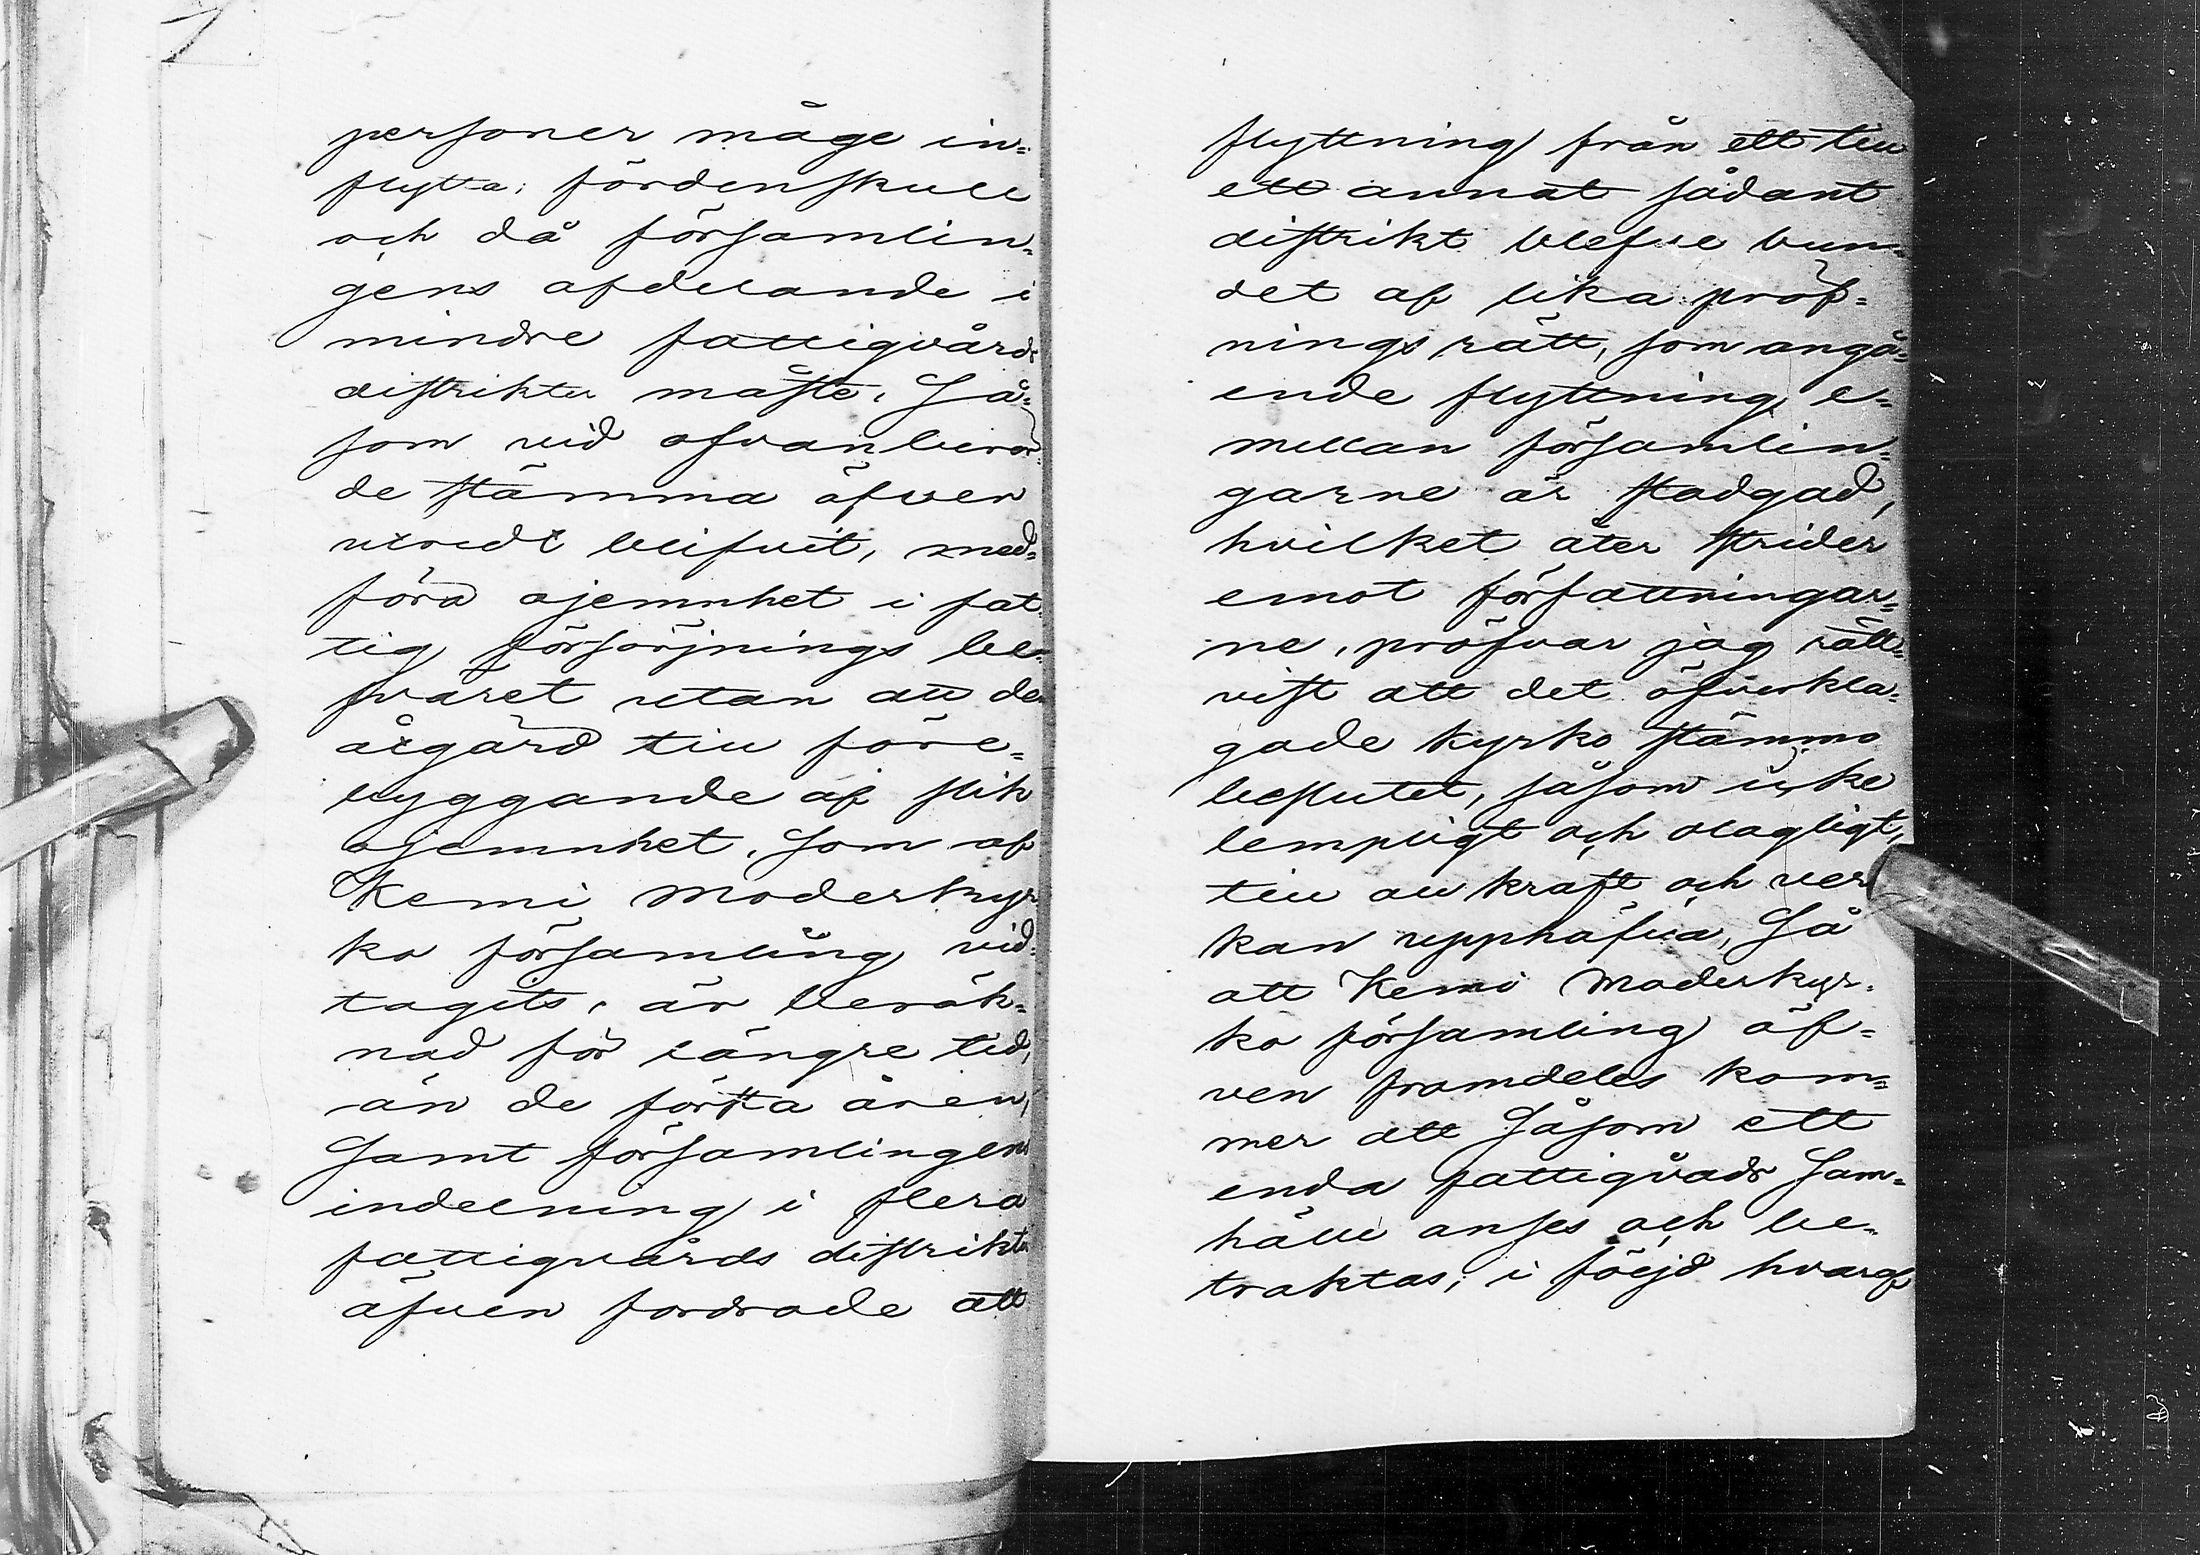 personer måge in=
flytta; fördenskull
och då församlin=
gens afdelande i
mindre fattigvårds
distrikter måste, Så=
som vid ofvanberör=
de stämma äfven
utredt blifvit, med=
föra ojemnhet i fat=
tig försörjnings be=
sväret utan att den
åtgärd till före=
byggande af slik
ojemnhet, Som af
Kemi Moderkyr=
ko församling vid=
tagits, är beräk=
nad för längre tid,
än de första åren,
Samt församlingens
indelning i flera
fattigvårds distrikter
äfven fordrade att
flyttning från ett till
ett annat sådant
distrikt blefve bun=
det af lika pröf=
nings rätt, som angå=
ende flyttning e=
mellan församlin=
garne är stadgad,
hvilket åter strider
emot författningar=
ne, pröfvar jag rätt=
vist att det öfverkla=
gade kyrko stämmo
beslutet, såsom icke
lempligt och olagligt,
till all kraft och ver
kan upphäfva, Så
att Kemi Moderkyr=
ko församling äf=
ven framdeles kom=
mer att Såsom ett
enda fattigvåds Sam=
hälle anses och be=
traktas; i följd hvaraf